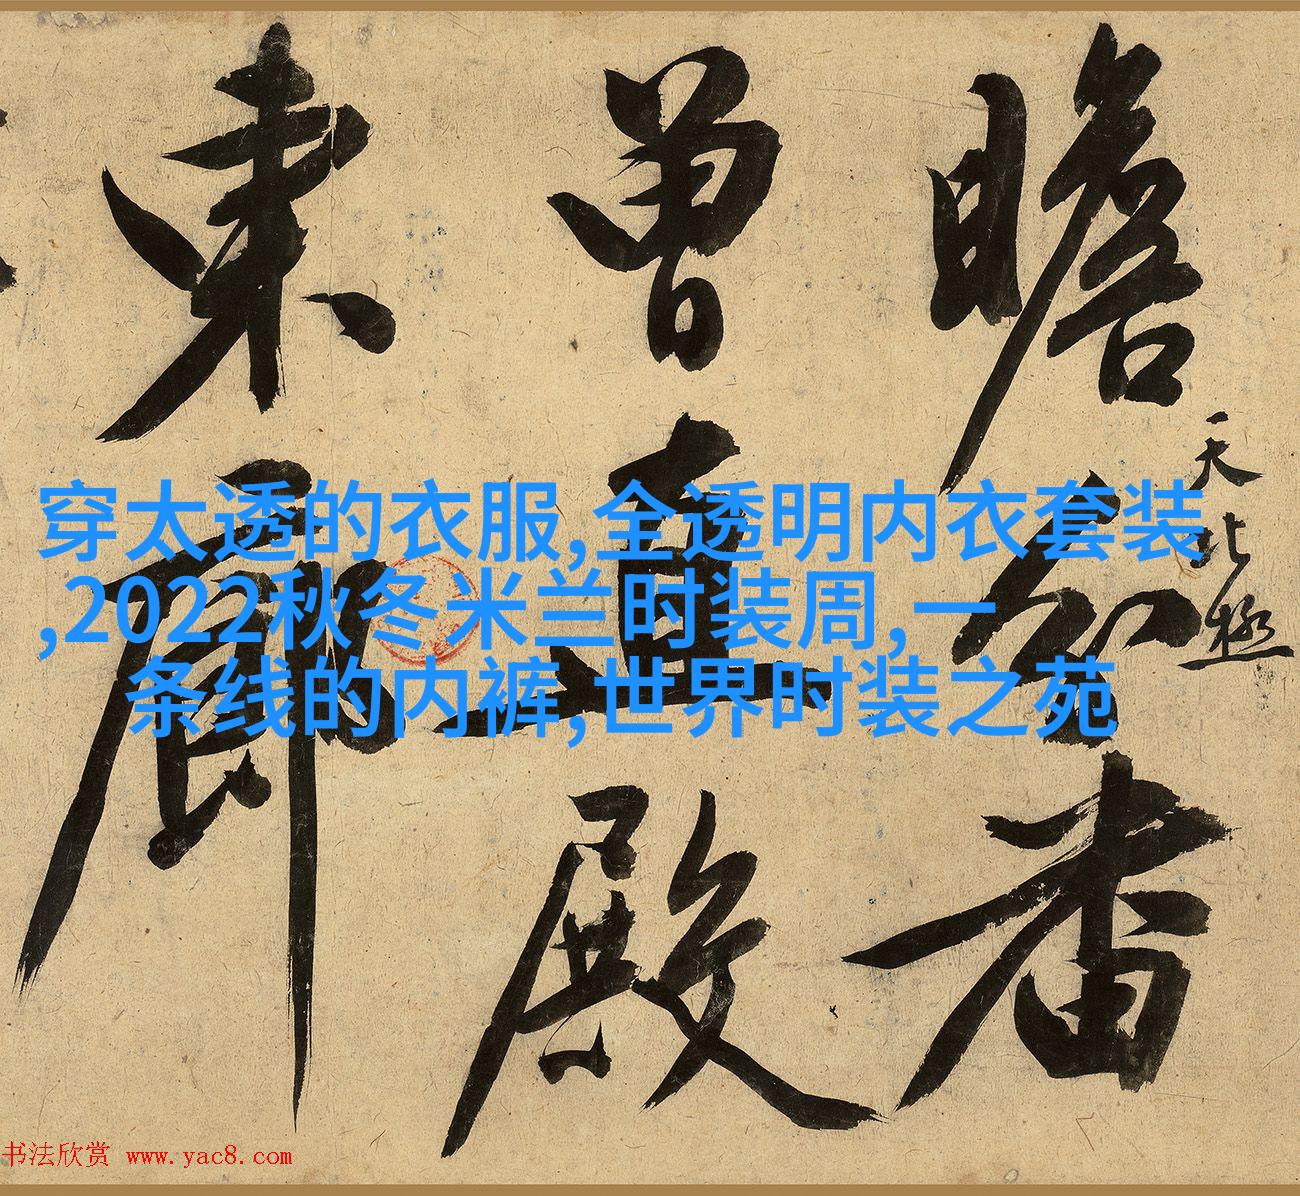 瞻
天北極
曾
殿
東
廊
穿太透的衣服,全透明内衣套装
,2022秋冬米兰时装周,一
条线的内裤,世界时装之苑
书法欣赏 www.yac8.com